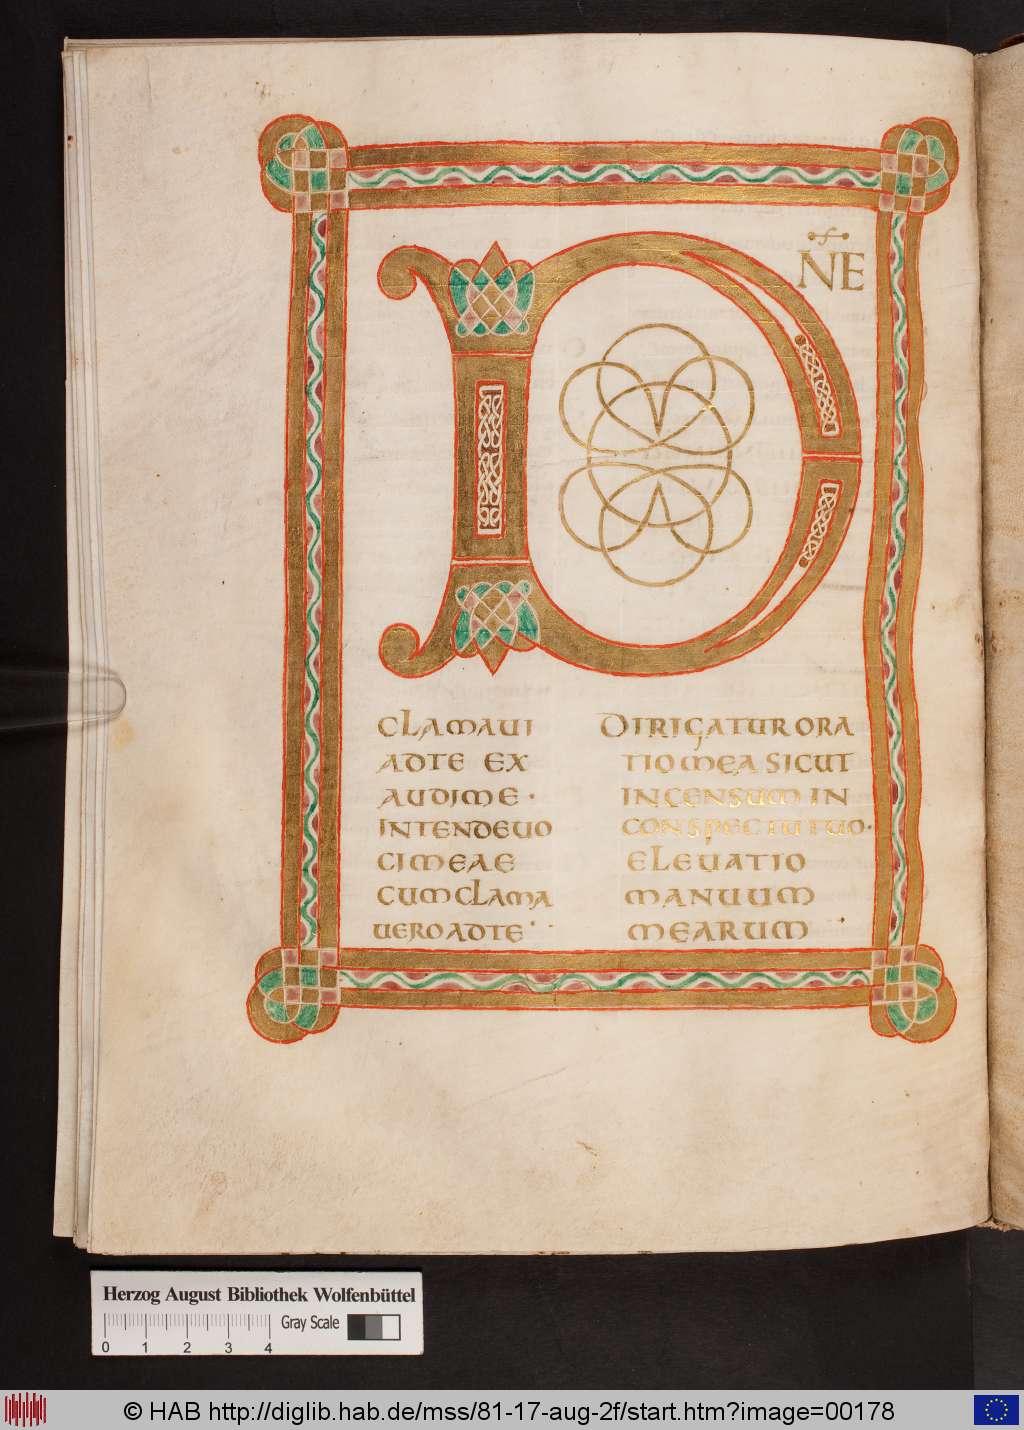 D NE
CLAMAVI
ADTE EX
AUDIME ·
INTENDEVO
CI MEAE
CUMCLAMA
UEROADTE ·
DIRIGATUR ORA
TIO MEA SICUT
INCENSUM IN
CONSPECTU TUO·
ELEVATIO
MANUUM
MEARUM
Herzog August Bibliothek Wolfenbüttel
Gray Scale
0 1 2 3 4
© HAB http://diglib.hab.de/mss/81-17-aug-2f/start.htm?image=00178